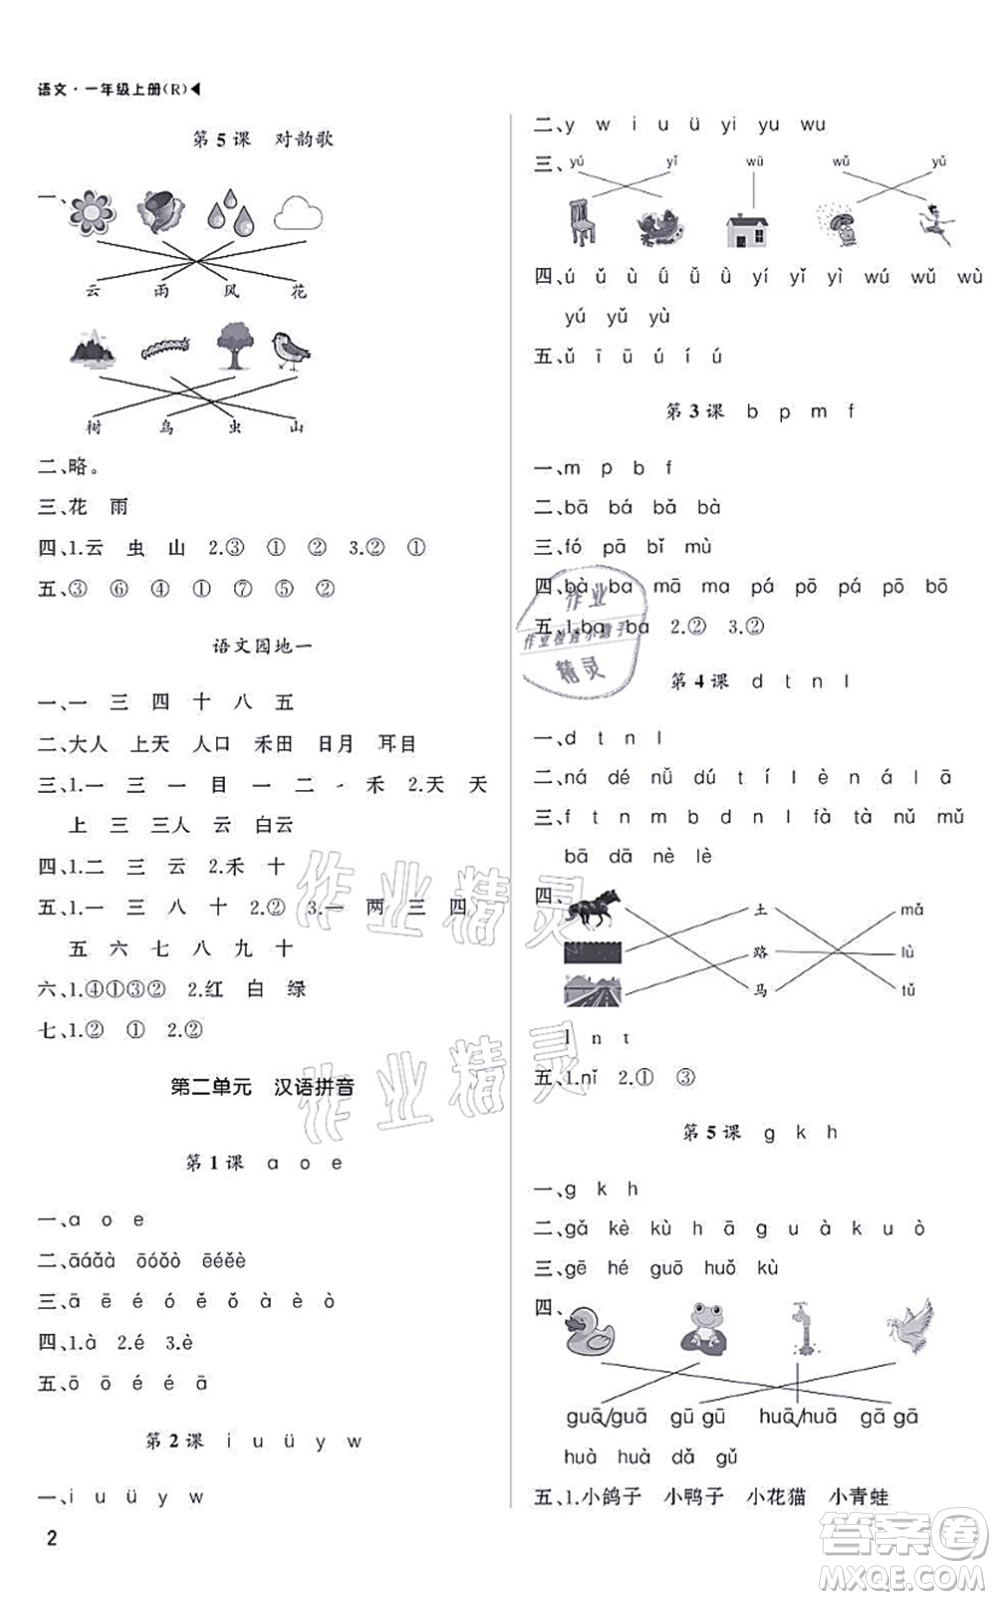 语文·一年级上册(R)◀
第 5 课 对韵歌
一、
云 雨 风 花
树 鸟 虫 山
二、略。
三、花 雨
四、1.云 虫 山 2.③ ① ② 3.② ①
五、③ ⑥ ④ ① ② ⑤
语文园地一
一、一 三 四 十 八 五
二、大人 上天 人口 禾田 日月 耳目
三、1.一 三 一 目 一 二 一 禾 2.天 天
上 三 三人 云 白云
四、1.二 三 云 2.禾 十
五、1.一 三 八 十 2.② 3.一 两 三 四
五 六 七 八 九 十
六、1.④①③② 2.红 白 绿
七、1.② ① 2.②
第二单元 汉语拼音
第 1 课 a o e
一、a o e
二、āáǎà ōóǒò ēéěè
三、ā ē é ó ě ǒ à è ò
四、1.à 2.é 3.è
五、ō ō é é ā
第 2 课 i u ü y w
一、i u ü y w
2
二、y w i u ü yi yu wu
三、
yú yǐ wū wǔ yǔ
四、ú ǔ ù ǘ ǚ ǜ yí yǐ yì wú wǔ wù
yú yǔ yù
五、ǔ ī ū ú í ú
第 3 课 b p m f
一、m p b f
二、bā bá bǎ bà
三、fó pā bǐ mù
四、bà ba mā ma pá pō pá pō bō
五、1.ba ba 2.② 3.②
第 4 课 d t n l
一、d t n l
二、ná dé nǚ dú t í l è n á l ā
三、f t n m b d n l fà tà nǔ mǔ
bā dā nè lè
四、
土 mǎ
路 lù
马 tǔ
l n t
五、1.nǐ 2.① ③
第 5 课 g k h
一、g k h
二、gǎ kè kù h ā g u à k u ò
三、gē hé guō huǒ kù
四、
guā/guā gū gū huā/huā gā gā
huà huà dǎ gǔ
五、1.小鸽子 小鸭子 小花猫 小青蛙
作业
作业检查小助手
精灵
作业精灵
作业精灵
答案圈
MXQE.COM